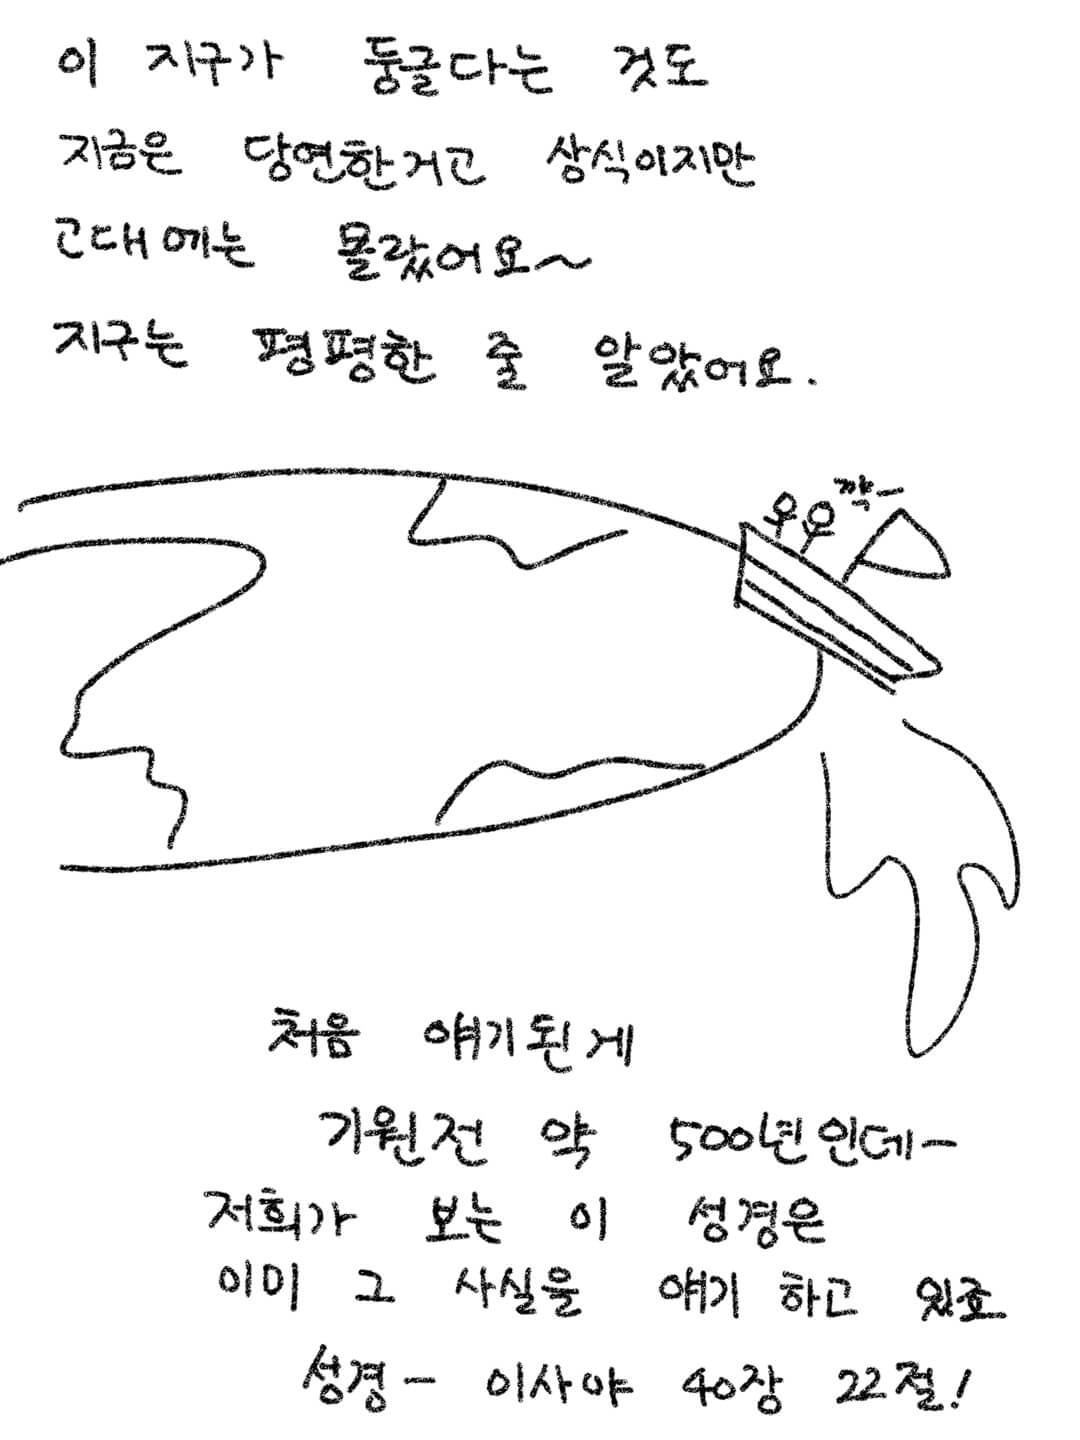 이 지구가 둥글다는 것도
지금은 당연한거고 상식이지만
고대에는 몰랐어요~
지구는 평평한 줄 알았어요.
꺅-
처음 얘기된게
기원전 약 500년인데-
저희가 보는 이 성경은
이미 그 사실을 얘기 하고 있죠
성경- 이사야 40장 22절!